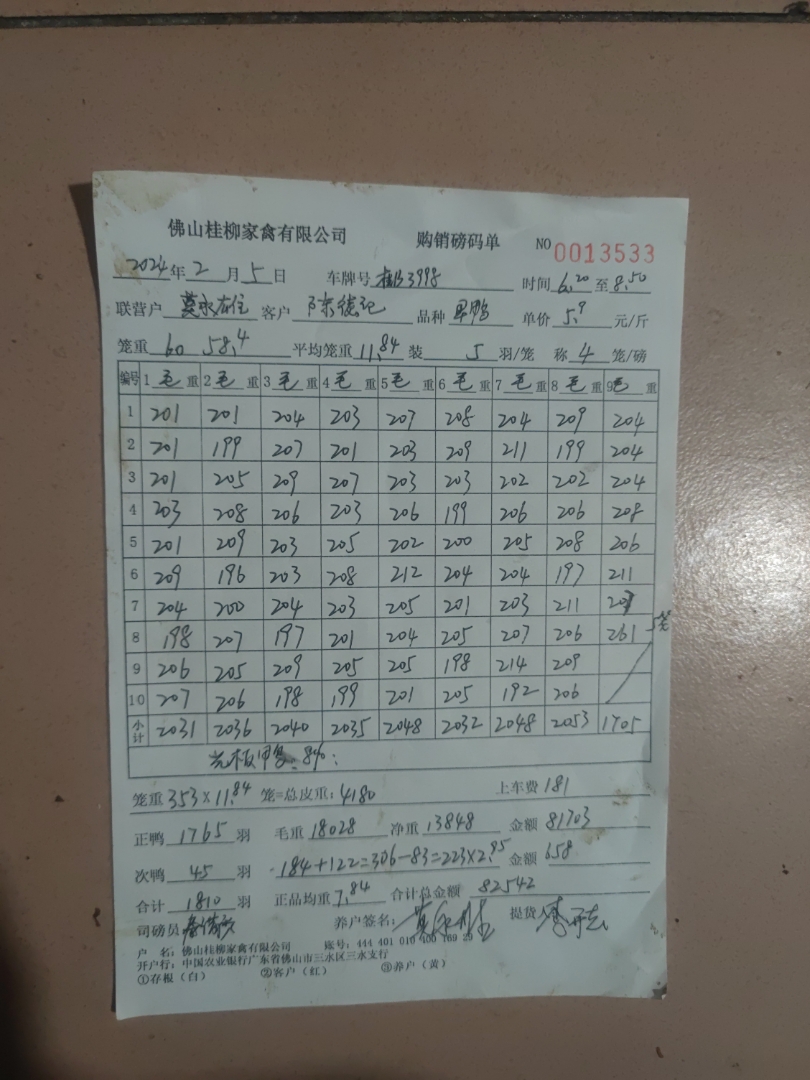 佛山桂柳家禽有限公司 购销磅码单 NO 0013533
2024年2月5日 车牌号 3998 时间6.20至8.50
联营户 客户 陈德记 品种 鸭 单价 5.9 元/斤
笼重 60 58.4 平均笼重 11.84 装 5 羽/笼 称 4 笼/磅
编号 1毛重 2毛重 3毛重 4毛重 5毛重 6毛重 7毛重 8毛重 9毛重
1 201 201 204 203 207 208 204 209 204
2 201 199 207 201 203 209 211 199 204
3 201 205 209 207 203 203 202 202 204
4 203 208 206 203 206 199 206 206 208
5 201 209 203 205 202 200 205 208 206
6 209 196 203 208 212 204 204 197 211
7 204 200 204 203 205 201 203 211
8 198 207 197 201 204 205 207 206 261 5笼
9 206 205 209 205 205 198 214 209
10 207 206 198 199 201 205 192 206
小计 2031 2036 2040 2035 2048 2032 2048 2053 1705
笼重 353×11.84 笼=总皮重: 4180 上车费 181
正鸭 1765 羽 毛重 18028 净重 13848 金额 81703
次鸭 45 羽 184+122=306-83=223×2.95 金额 658
合计 1810 羽 正品均重 7.84 合计总金额 82542
司磅员 养户签名: 提货人
户 名: 佛山桂柳家禽有限公司 账号: 444 401 010 400 169 29
开户行: 中国农业银行广东省佛山市三水区三水支行
①存根(白) ②客户(红) ③养户(黄)